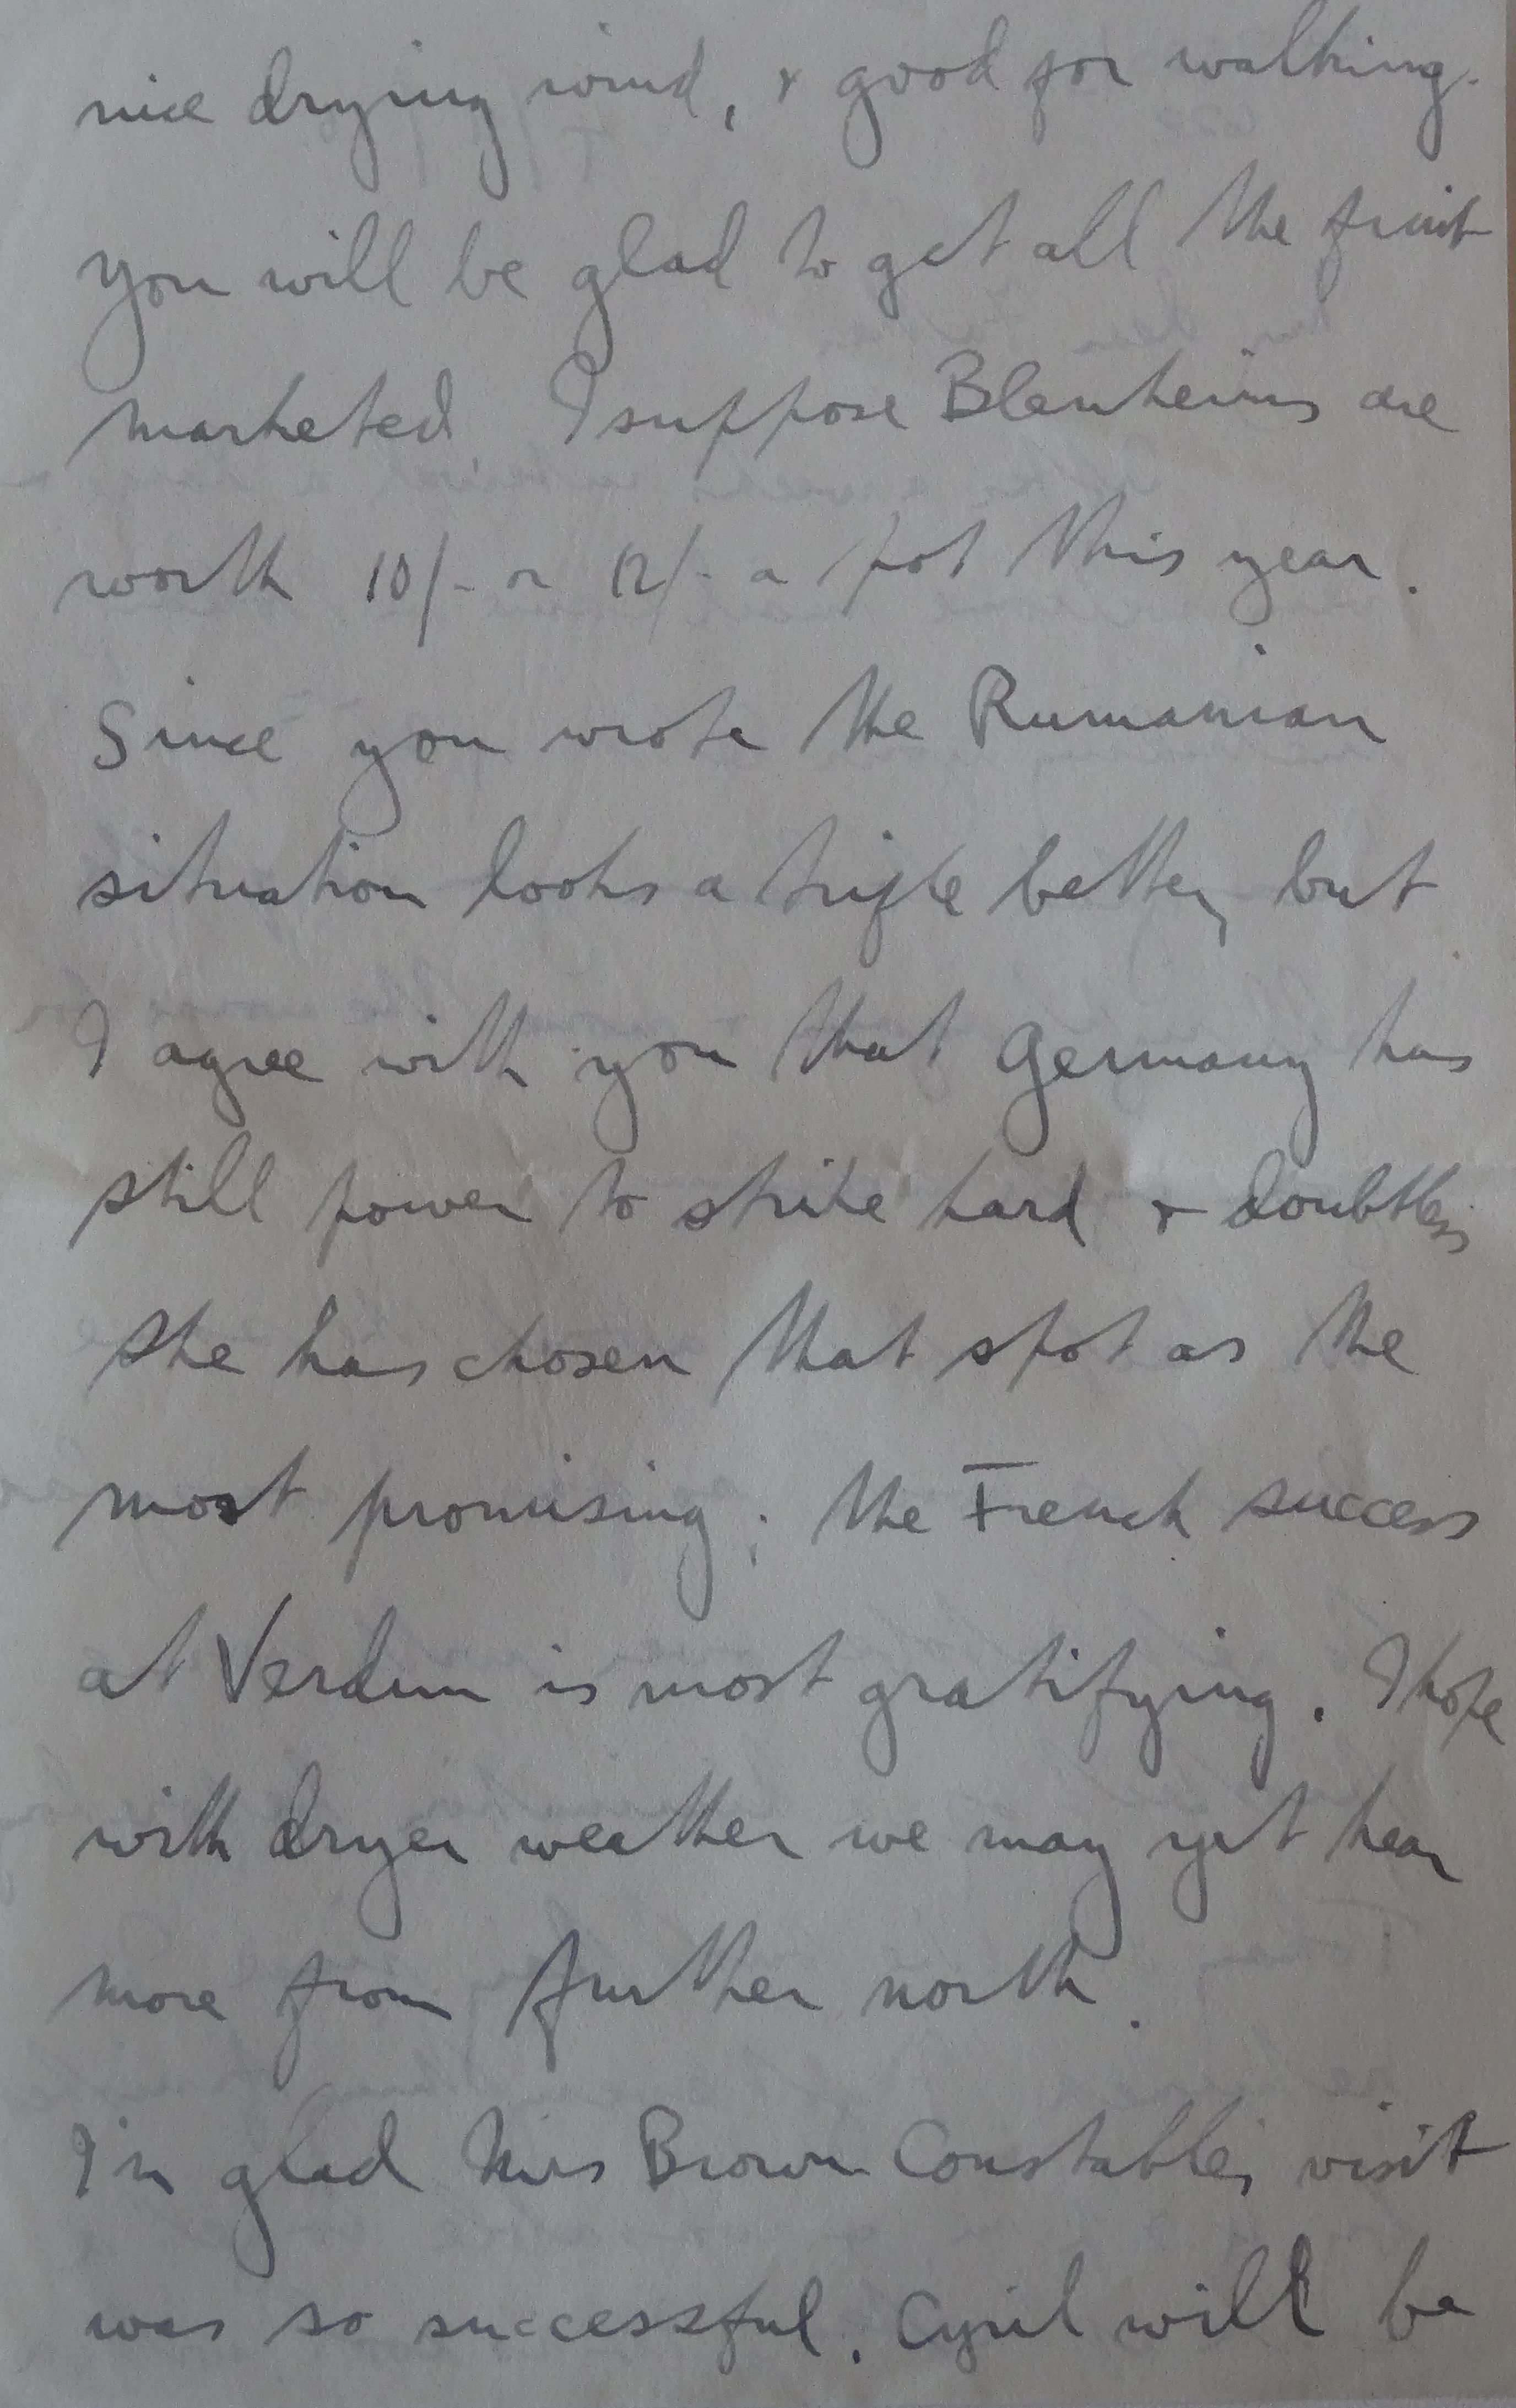 nice drying wind, & good for walking.
you will be glad to get all the fruit
marketed I suppose Blenheims are
worth 10/- or 12/- a pot this year.
Since you wrote the Rumanian
situation looks a trifle better, but
I agree with you that Germany has
still power to strike hard & doubtless
she has chosen that spot as the
most promising; the French success
at Verdun is most gratifying. I hope
with dryer weather we may yet hear
more from further north.
I'm glad Miss Brown Constables visit
was so successful. Cyril will be